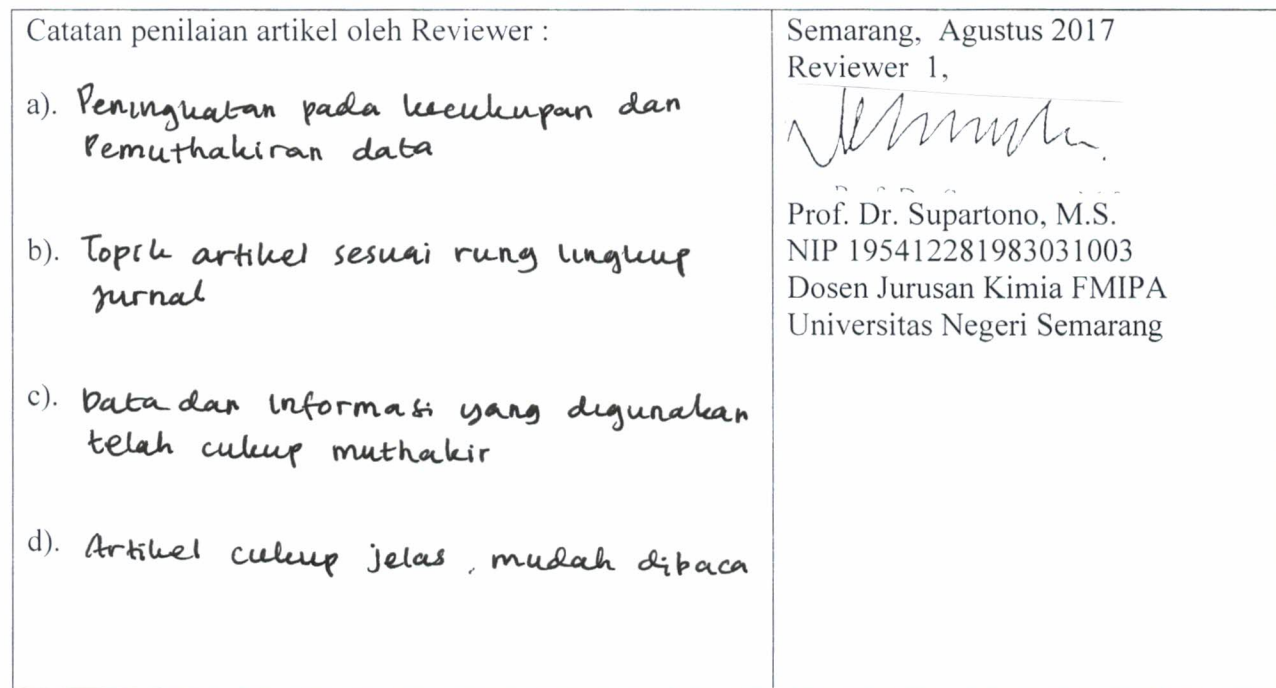 Catatan penilaian artikel oleh Reviewer :
a). Peningkatan pada kecukupan dan
Pemuthakiran data
b). Topik artikel sesuai rung lingkup
jurnal
c). Data dan informasi yang digunakan
telah cukup muthakir
d). Artikel cukup jelas, mudah dibaca
Semarang, Agustus 2017
Reviewer 1,
Prof. Dr. Supartono, M.S.
NIP 195412281983031003
Dosen Jurusan Kimia FMIPA
Universitas Negeri Semarang